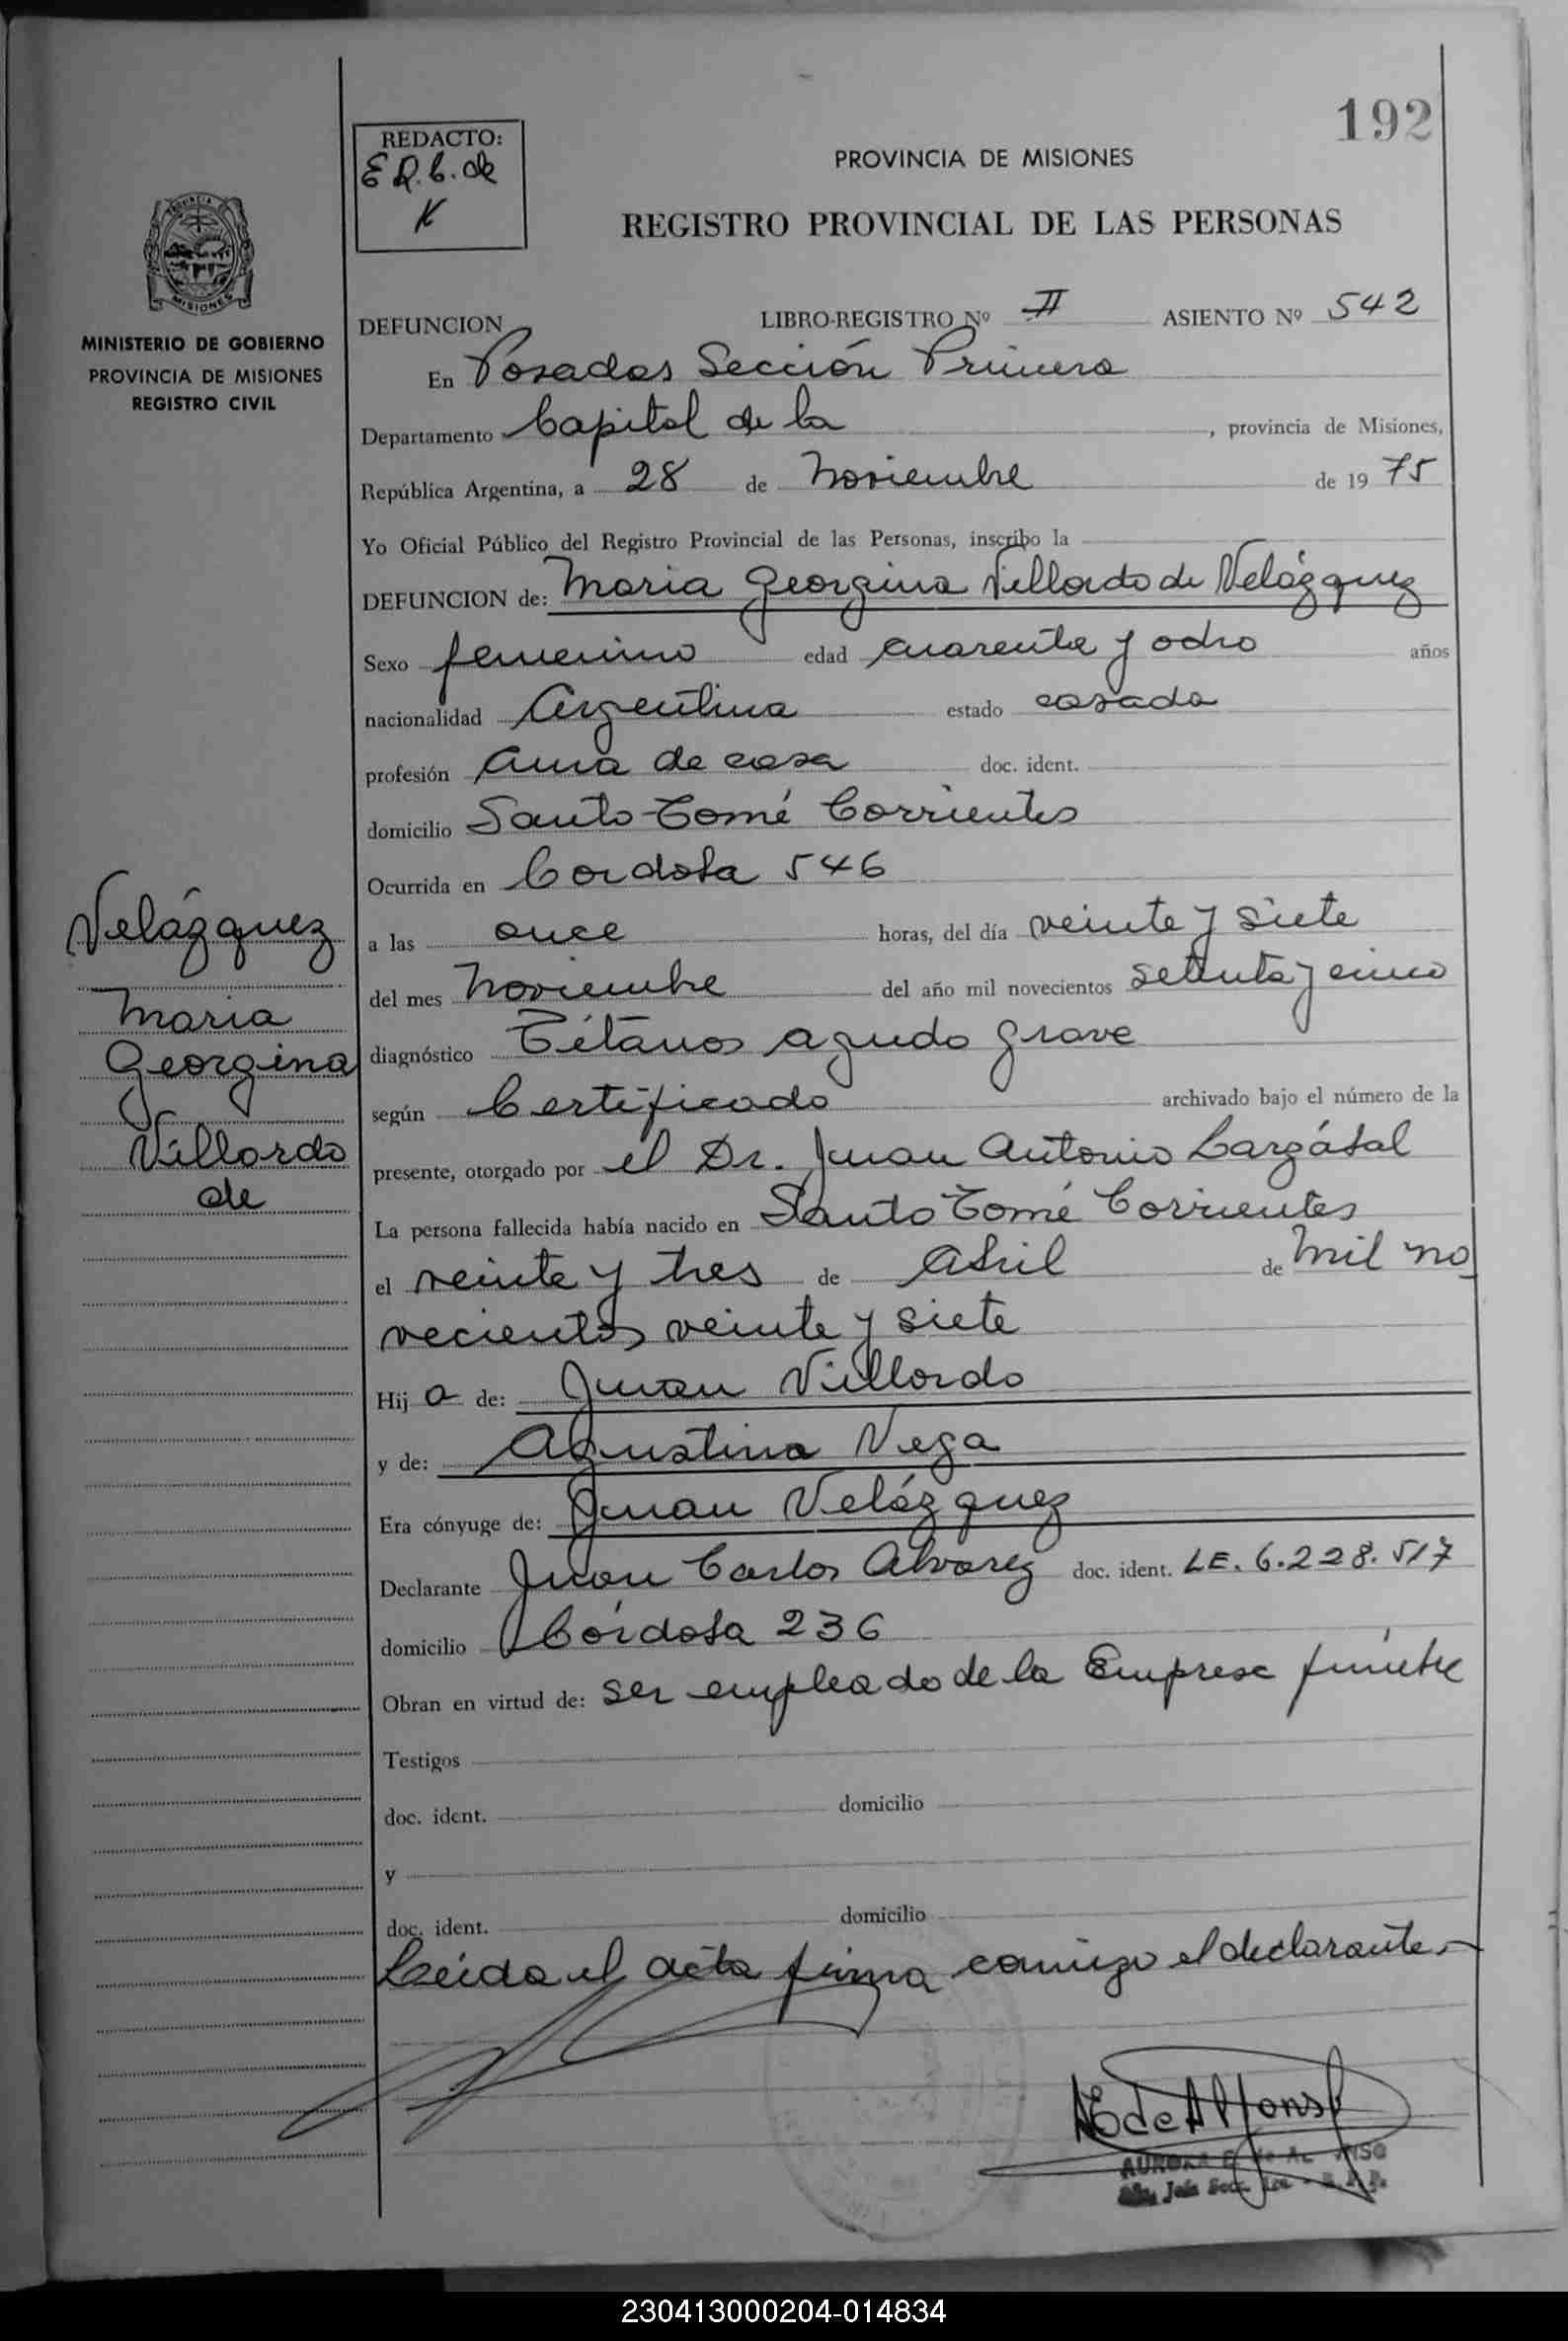 192
REDACTO:
E R. b. de
K
PROVINCIA DE MISIONES
REGISTRO PROVINCIAL DE LAS PERSONAS
MISIONES
MINISTERIO DE GOBIERNO
PROVINCIA DE MISIONES
REGISTRO CIVIL
DEFUNCION LIBRO-REGISTRO Nº II ASIENTO Nº 542
En Posadas Sección Primera
Departamento Capital de la, provincia de Misiones,
República Argentina, a 28 de Noviembre de 1975
Yo Oficial Público del Registro Provincial de las Personas, inscribo la
DEFUNCION de: Maria Georgina Villordo de Velázquez
Sexo femenino edad cuarenta y ocho años
nacionalidad Argentina estado casada
profesión Ama de casa doc. ident.
domicilio Santo Tomé Corrientes
Ocurrida en Cordoba 546
a las once horas, del día veinte y siete
del mes Noviembre del año mil novecientos setenta y cinco
diagnóstico Tétanos agudo grave
según Certificado archivado bajo el número de la
presente, otorgado por el Dr. Juan Antonio
La persona fallecida había nacido en Santo Tomé Corrientes
el veinte y tres de Abril de Mil no
vecientos veinte y siete
Hija de: Juan Villordo
y de: Agustina Vega
Era cónyuge de: Juan Velázquez
Declarante Juan Carlos Alvarez doc. ident. LE. 6.228.517
domicilio Córdoba 236
Obran en virtud de: ser empleado de la Empresa fúnebre
Testigos
doc. ident. domicilio
y
doc. ident. domicilio
Leída el acta firma conmigo el declarante.-
Velázquez
Maria
Georgina
Villordo
de
E de Alfonso
230413000204-014834